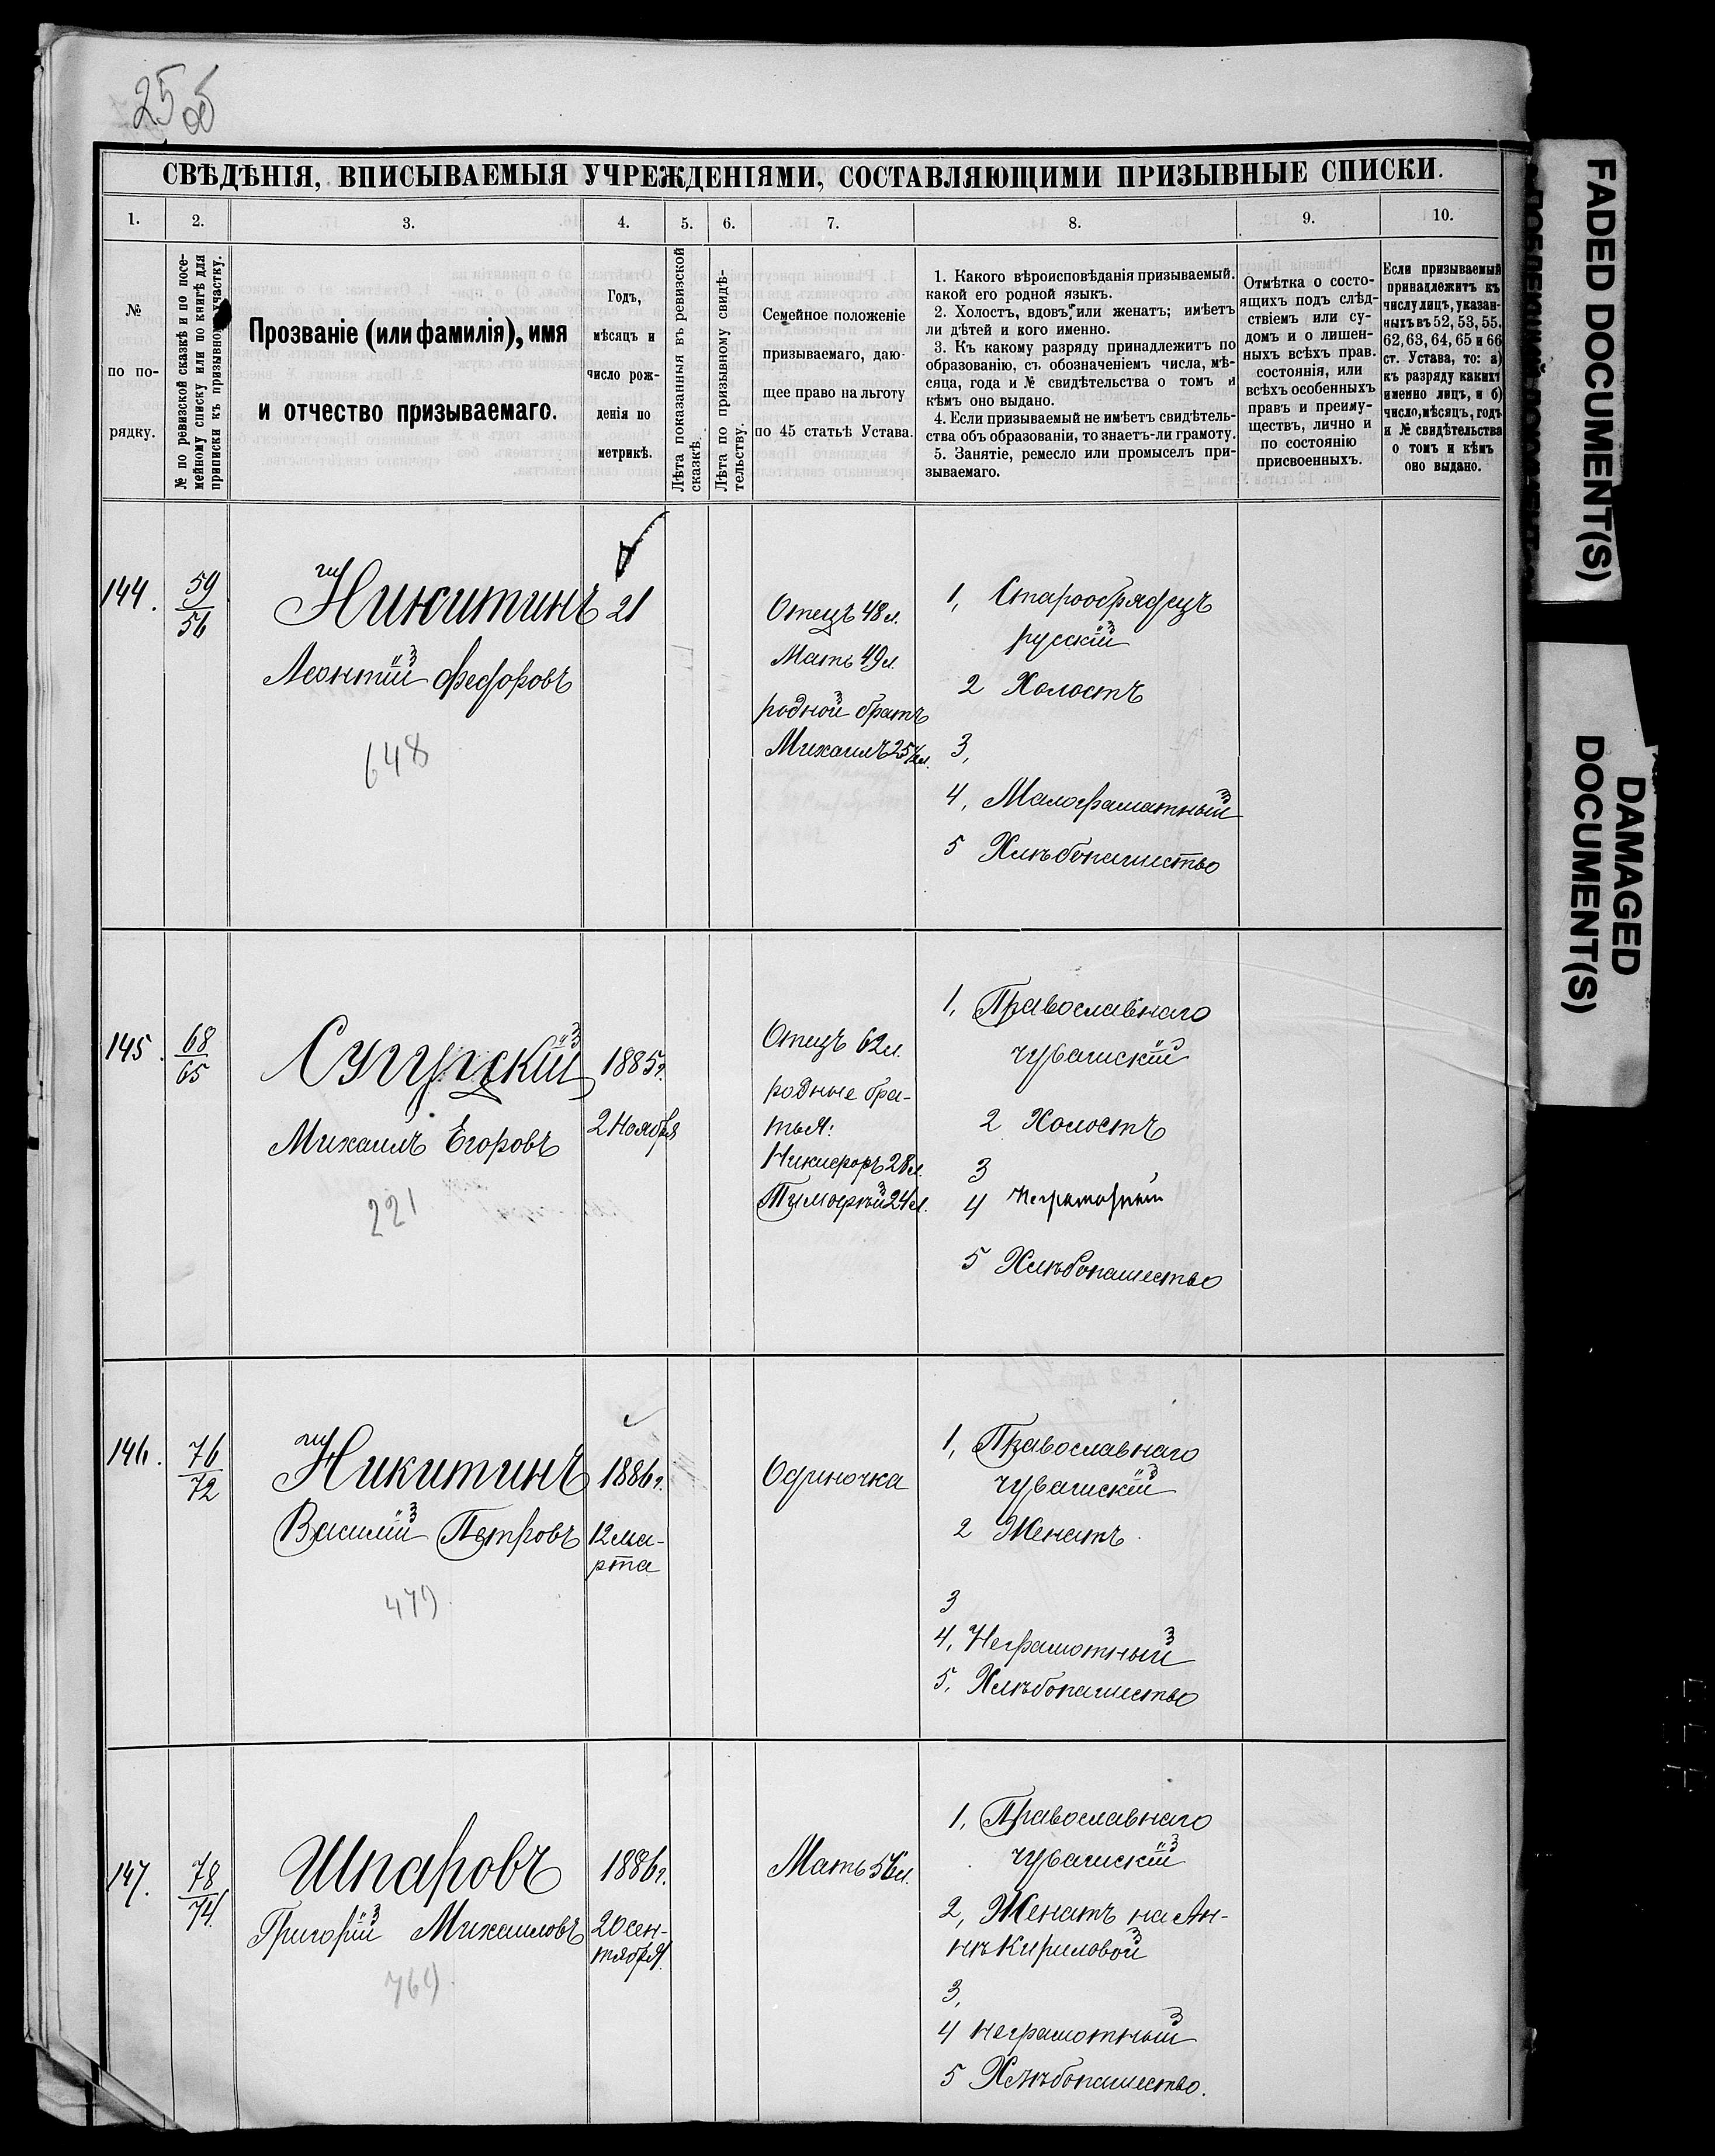 25 об
СВѢДѢНІЯ, ВПИСЫВАЕМЫЯ УЧРЕЖДЕНІЯМИ, СОСТАВЛЯЮЩИМИ ПРИЗЫВНЫЕ СПИСКИ.
1. 2. 3. 4. 5. 6. 7. 8. 9. 10.
№
по по-
рядку.
№ по ревизской сказкѣ и по посе-
мейному списку или по книгѣ для
приписки къ призывному участку.
Прозваніе (или фамилія), имя
и отчество призываемаго.
Годъ,
мѣсяцъ и
число рож-
денія по
метрикѣ.
Лѣта показанныя въ ревизской
сказкѣ.
Лѣта по призывному свидѣ-
тельству.
Семейное положеніе
призываемаго, даю-
щее право на льготу
по 45 статьѣ Устава.
1. Какого вѣроисповѣданія призываемый.
какой его родной языкъ.
2. Холостъ, вдовъ, или женатъ; имѣетъ
ли дѣтей и кого именно.
3. Къ какому разряду принадлежитъ по
образованію, съ обозначеніемъ числа, мѣ-
сяца, года и № свидѣтельства о томъ и
кѣмъ оно выдано.
4. Если призываемый не имѣетъ свидѣтель-
ства объ образованіи, то знаетъ-ли грамоту.
5. Занятіе, ремесло или промыселъ при-
зываемаго.
Отмѣтка о состо-
ящихъ подъ слѣд-
ствіемъ или су-
домъ и о лишен-
ныхъ всѣхъ прав.
состоянія, или
всѣхъ особенныхъ
правъ и преиму-
ществъ, лично и
по состоянію
присвоенныхъ.
Если призываемый
принадлежитъ къ
числу лицъ, указан-
ныхъ въ 52, 53, 55,
62, 63, 64, 65 и 66
ст. Устава, то: а)
къ разряду какихъ
именно лицъ, и б)
число, мѣсяцъ, годъ
и № свидѣтельства
о томъ и кѣмъ
оно выдано.
144.
59
56
Никитинъ
Леонтій Федоровъ
648
21
Отецъ 48 л.
Мать 49 л.
родной братъ
Михаилъ 25½ л.
1, Старообрядецъ
русскій
2 Холостъ
3,
4, Малограматный
5 Хлѣбопашество
145.
68
65
Михаилъ Егоровъ
221
1885 г.
2 Ноября
Отецъ 62 л.
родные бра-
тья:
Никифоръ 28 л.
Тимофѣй 24 л.
1, Православнаго
чувашскій
2 Холостъ
3
4 Неграмотный
5 Хлѣбопашество
146.
76
72
Никитинъ
Василій Петровъ
479
1886 г.
12 ма-
рта
Одиночка
1, Православнаго
чувашскій
2 Женатъ
3
4, Неграмотный
5, Хлѣбопашество
147.
78
74.
Шпаровъ
Григорій Михаиловъ
769
1886 г.
20 сен-
тября
Мать 56 л.
1, Православнаго
чувашскій
2, Женатъ на Ан-
нѣ Кириловой
3,
4 неграмотный
5 Хлѣбопашество.
FADED DOCUMENT(S)
DAMAGED
DOCUMENT(S)